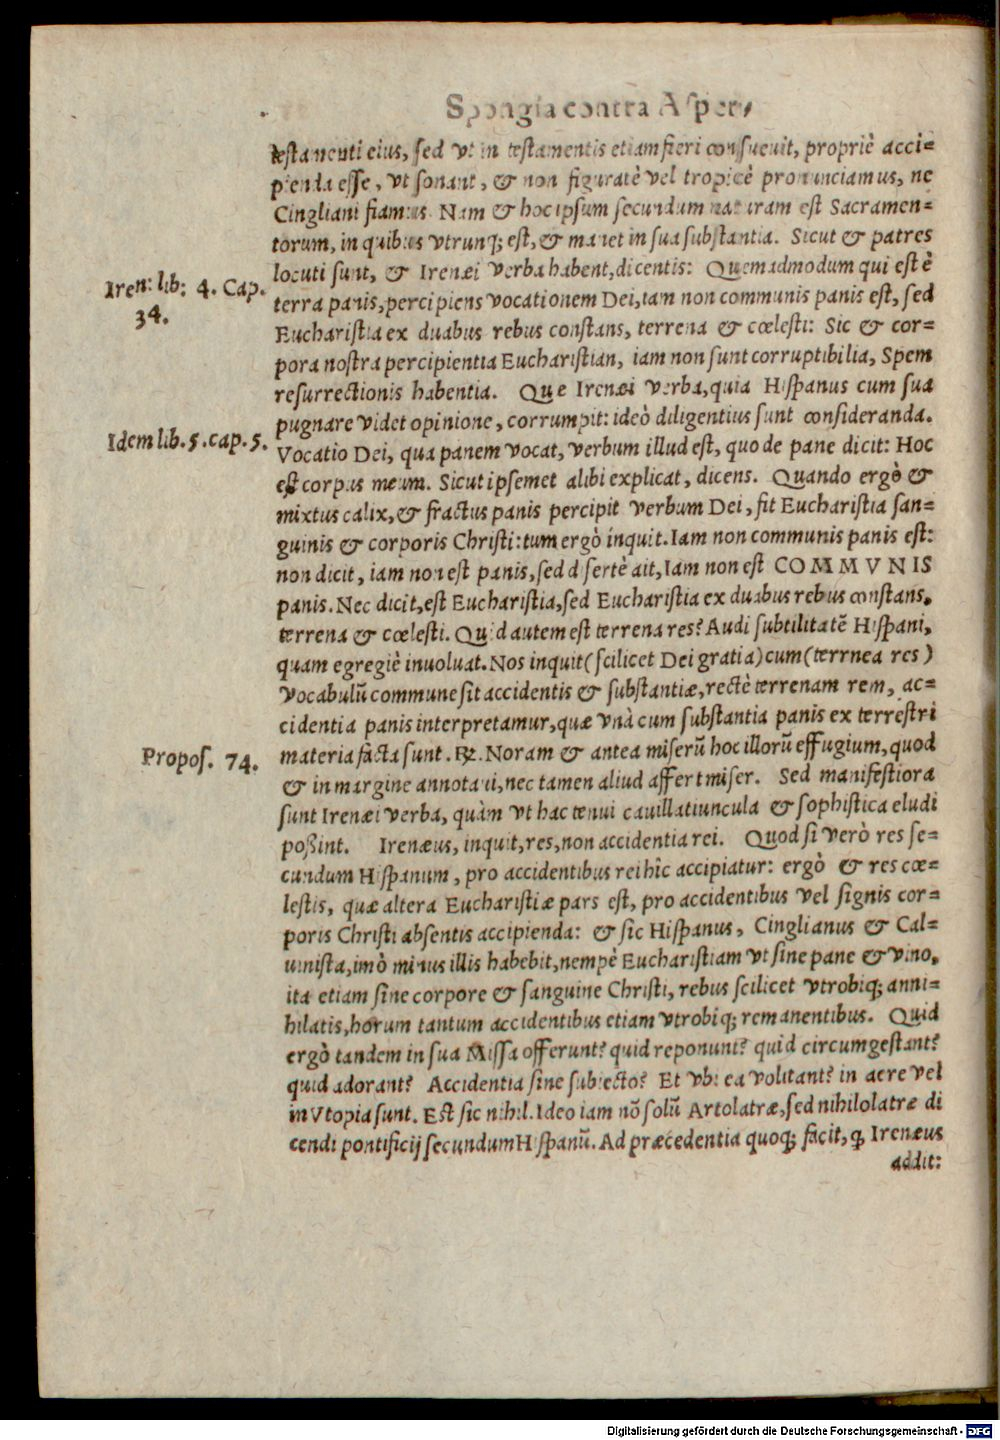 Spongia contra Asper,
testamenti eius, sed vt in testamentis etiam fieri consueuit, propriè acci=
pienda esse, vt sonant, & non figuratè vel tropicè pronunciamus, ne
Cingliani fiamus. Nam & hoc ipsum secundum naturam est Sacramen=
torum, in quibus vtrunq; est, & manet in sua substantia. Sicut & patres
locuti sunt, & Irenæi verba habent, dicentis: Quemadmodum qui est è
Iren: lib: 4. Cap.
34.
terra panis, percipiens vocationem Dei, iam non communis panis est, sed
Eucharistia ex duabus rebus constans, terrena & cœlesti: Sic & cor=
pora nostra percipientia Eucharistian, iam non sunt corruptibilia, Spem
resurrectionis habentia. Quæ Irenæi verba, quia Hispanus cum sua
pugnare videt opinione, corrumpit: ideò diligentius sunt consideranda.
Idem lib. 5. cap. 5.
Vocatio Dei, qua panem vocat, verbum illud est, quo de pane dicit: Hoc
est corpus meum. Sicut ipsemet alibi explicat, dicens. Quando ergò &
mixtus calix, & fractus panis percipit verbum Dei, fit Eucharistia san=
guinis & corporis Christi: tum ergò inquit. Iam non communis panis est:
non dicit, iam non est panis, sed disertè ait, Iam non est COMMVNIS
panis. Nec dicit, est Eucharistia, sed Eucharistia ex duabus rebus constans,
terrena & cœlesti. Quid autem est terrena res? Audi subtilitatē Hispani,
quam egregiè inuoluat. Nos inquit (scilicet Dei gratia) cum (terrnea res)
vocabulū commune sit accidentis & substantiæ, rectè terrenam rem, ac=
cidentia panis interpretamur, quæ vnà cum substantia panis ex terrestri
Propos. 74.
materia facta sunt. ℞. Noram & antea miserū hoc illorū effugium, quod
& in margine annotaui, nec tamen aliud affert miser. Sed manifestiora
sunt Irenæi verba, quàm vt hac tenui cauillatiuncula & sophistica eludi
poßint. Irenæus, inquit, res, non accidentia rei. Quod si verò res se=
cundum Hispanum, pro accidentibus rei hîc accipiatur: ergò & res cœ=
lestis, quæ altera Eucharistiæ pars est, pro accidentibus vel signis cor=
poris Christi absentis accipienda: & sic Hispanus, Cinglianus & Cal=
uinista, imò minus illis habebit, nempè Eucharistiam vt sine pane & vino,
ita etiam sine corpore & sanguine Christi, rebus scilicet vtrobiq; anni=
hilatis, horum tantum accidentibus etiam vtrobiq; remanentibus. Quid
ergò tandem in sua Missa offerunt? quid reponunt? quid circumgestant?
quid adorant? Accidentia sine subiecto? Et vbi ea volitant? in aere vel
in Vtopia sunt. Est sic nihil. Ideo iam nō solū Artolatræ, sed nihilolatræ di
cendi pontificij secundum Hispanū. Ad præcedentia quoq; facit, ꝙ Irenæus
addit:
Digitalisierung gefördert durch die Deutsche Forschungsgemeinschaft - DFG